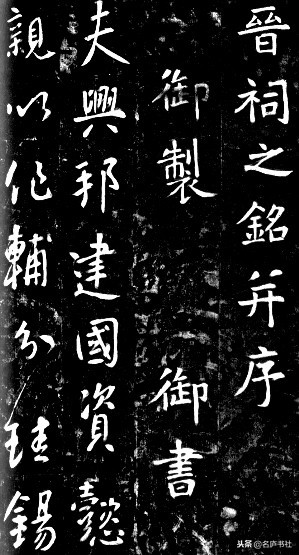 晉祠之銘并序
御製 御書
夫興邦建國資懿
親以作輔分珪錫
头条 @名庐书社